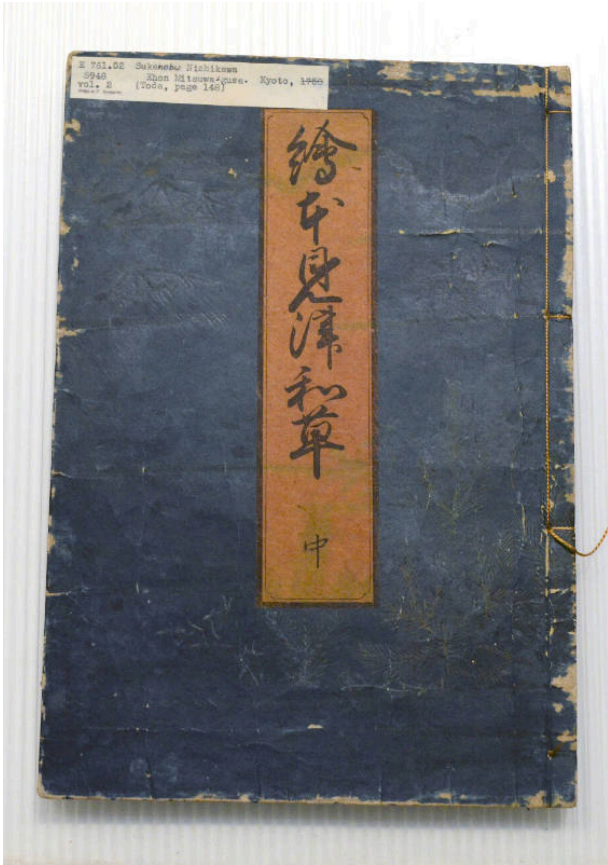 E 761.52 Sukenobu Nishikawa
S948 Ehon Mitsuwa-gusa. Kyoto, 1758
vol. 2 (Toda, page 148)
繪本見津和草
中